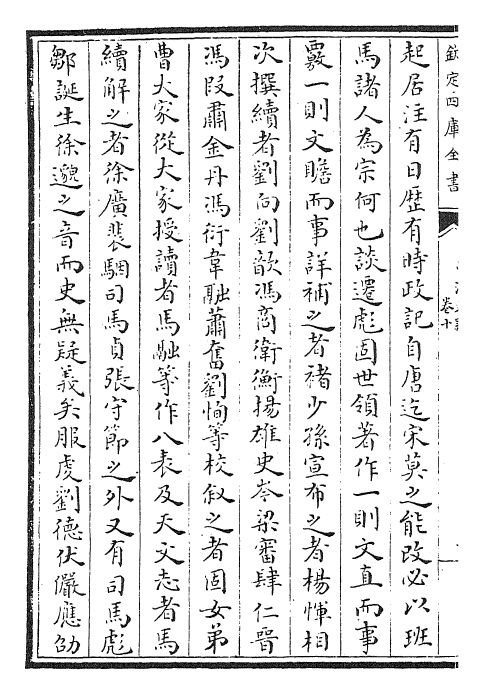 欽定四庫全書
卷十
起居注有日歴有時政記自唐迄宋莫之能改必以班
馬諸人為宗何也談遷彪固世領著作一則文直而事
覈一則文贍而事詳補之者褚少孫宣布之者楊惲相
次撰續者劉向劉歆馮商衛衡揚雄史岑梁審肆仁晉
馮段肅金丹馮衍韋融蕭奮劉恂等校叙之者固女弟
曹大家從大家授讀者馬融等作八表及天文志者馬
續解之者徐廣裴駰司馬貞張守節之外又有司馬彪
鄒誕生徐邈之音而史無疑義矣服虔劉德伏儼應劭